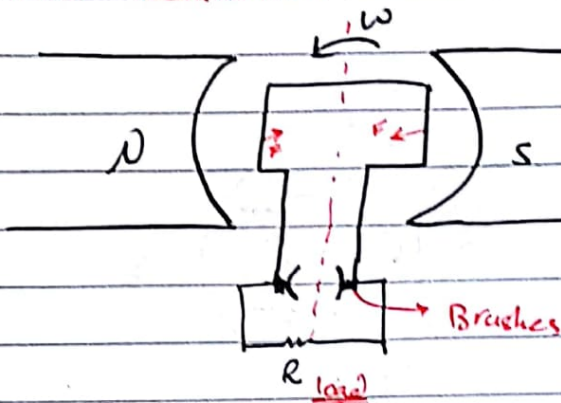 ω
N
F
F
S
Brushes
R
load